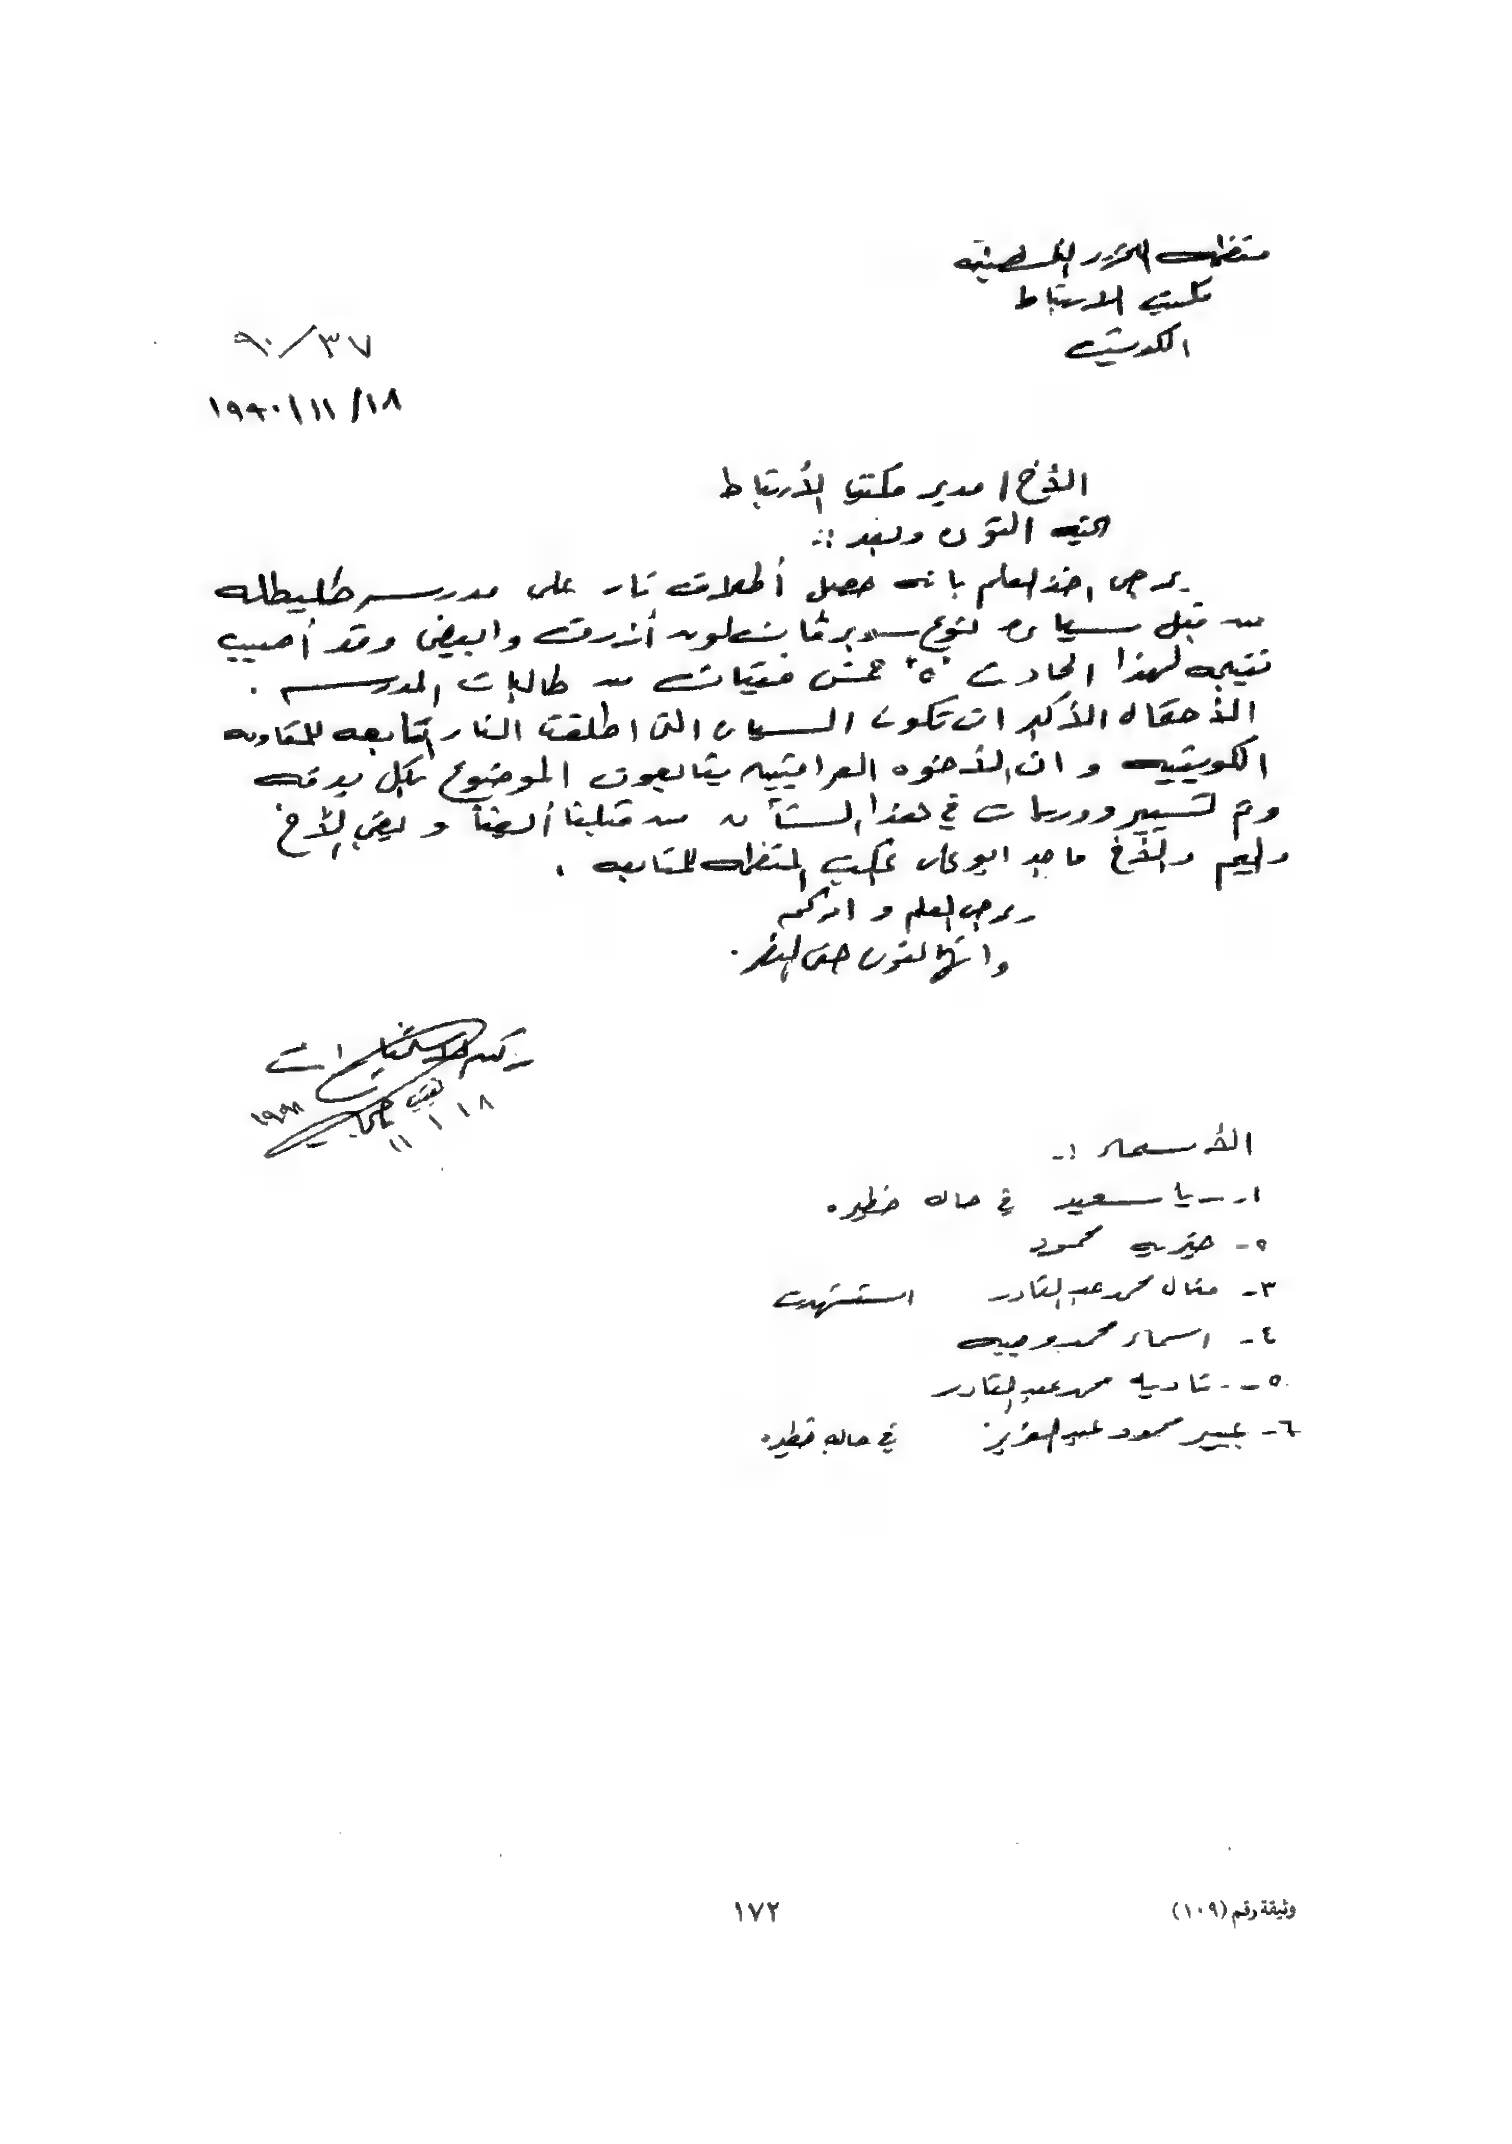 منظمة التحرير الفلسطينية
مكتب الارتباط
الكويت
٩٠/٣٧
١٩٩٠/١١/١٨
الأخ / مدير مكتب الأرتباط
تحيه الثوره وبعد :-
يرجى اخذ العلم بانه حصل أطلاق نار على مدرسة طليطله
من قبل سياره نوع سوبربان لون أزرق وابيض وقد أصيب
نتيجه لهذا الحادث "٥" خمس فتيات من طالبات المدرسه .
الأحتمال الأكبر ان تكون السياره التي اطلقت النار تابعه للمقاومه
الكويتيه و ان الأخوه العراقيين يتابعون الموضوع بكل بدقه
وتم تسيير دوريات في هذا الشأن من قبلنا أيضاً و يضع الأخ
وليم والأخ ماجد ابو علي بمكتب المنظمه للمتابعه .
يرجى العلم و امركم
وانها لثوره حتى النصر .
ركن الاستخبارات
نقيب
١١ / ١٨
الأسماء :-
١- سعيد في حاله خطيره
٢- خيريه محمود
٣- منال محمد عبد القادر استشهدت
٤- اسماء محمد وجيه
٥- ناديه محمد عبد القادر
٦- عبير محمود عبد العزيز في حاله خطيره
وثيقة رقم (١٠٩)
١٧٢